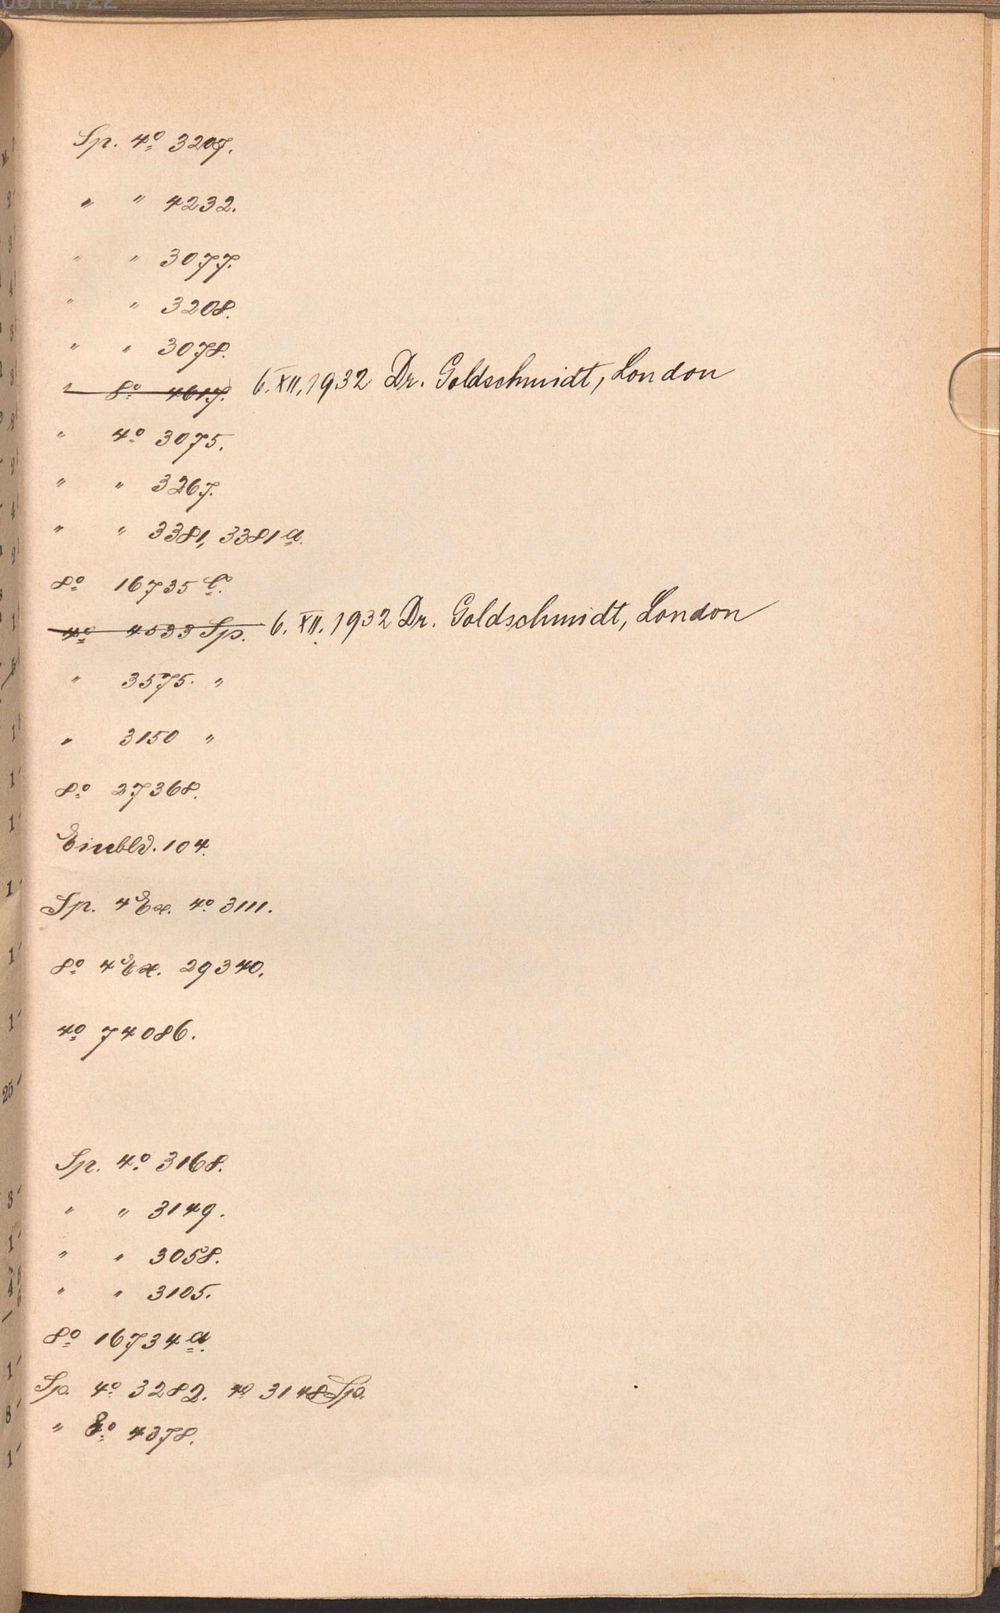 Sp. 4º 3207.
" " 4232.
" " 3077.
" " 3208.
" " 3078.
" 8º 4617. 6. XII. 1932 Dr. Goldschmidt, London
" 4º 3075.
" " 3267.
" " 3381, 3381 a.
8º 16735
4º 4533 Sp. 6. XII. 1932 Dr. Goldschmidt, London
" 3575. "
" 3150 "
8º 27368.
Einbld. 104.
Sp. 4 Ex. 4º 3111.
8º 4 Ex. 29340.
4º 74086.
Sp. 4º 3168.
" " 3149.
" " 3058.
" " 3105.
8º 16734 a.
Sp. 4º 3282. 4º 3148 Sp.
" 8º 4378.